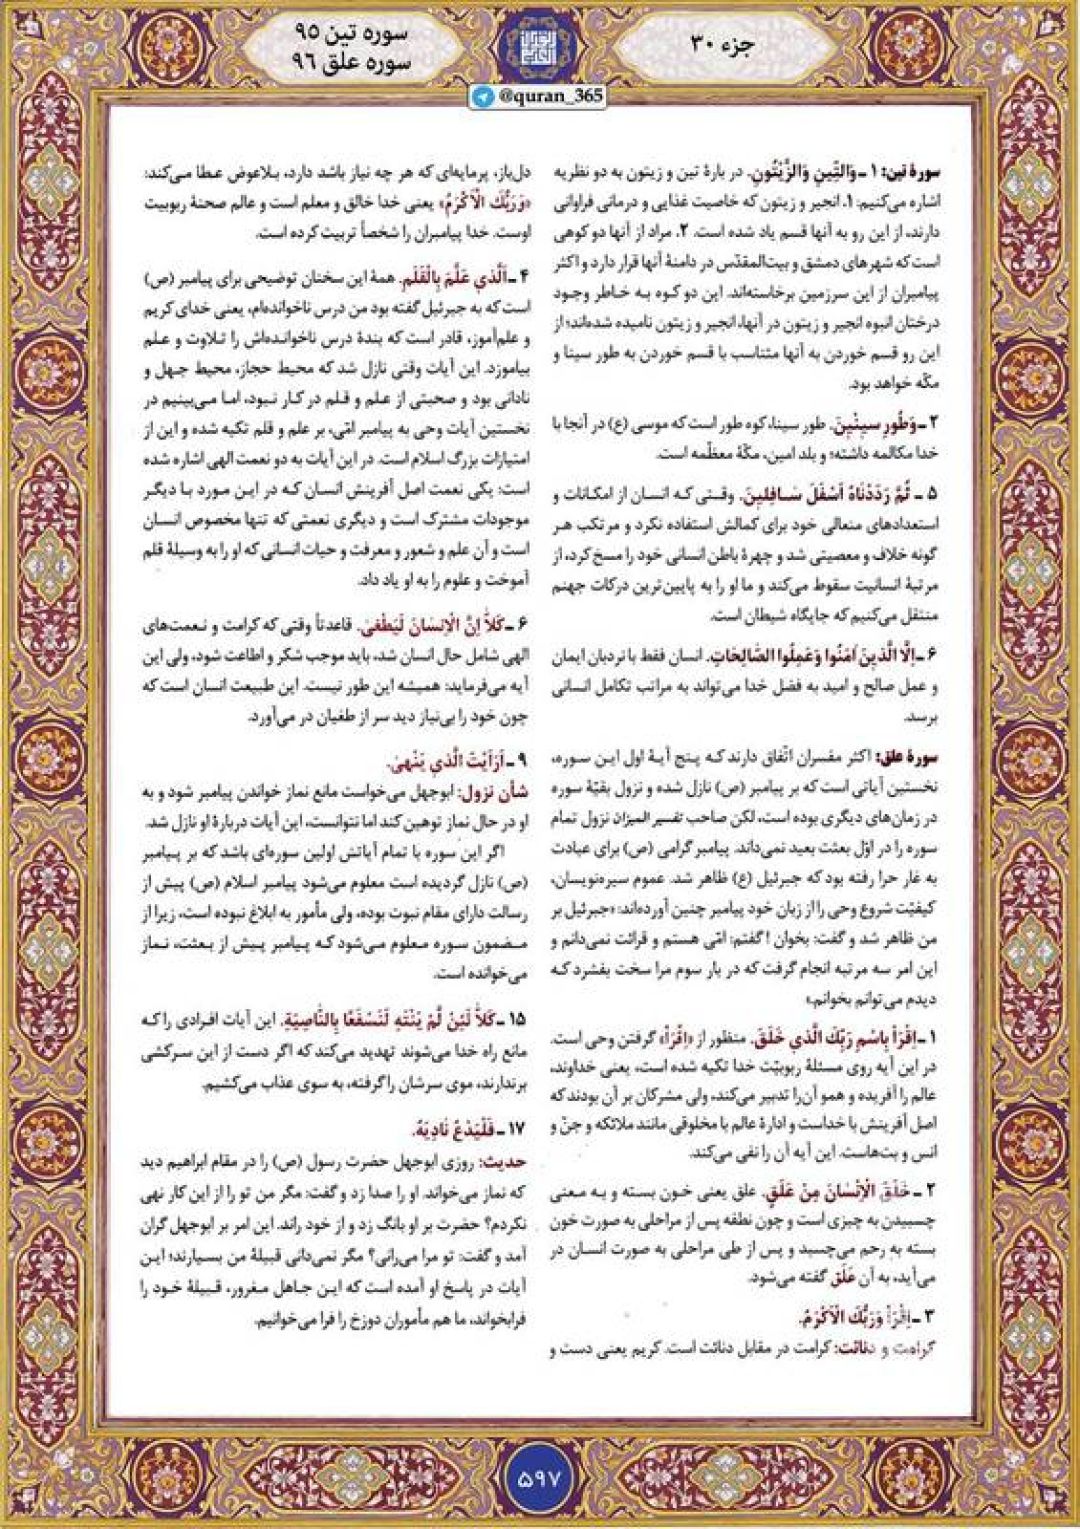 جزء ۳۰
سوره تین ۹۵
سوره علق ۹۶
@quran_365
سورهٔ تین: ۱ـ وَالتّینِ وَالزَّیْتُونِ. در بارهٔ تین و زیتون به دو نظریه
اشاره می‌کنیم: ۱. انجیر و زیتون که خاصیت غذایی و درمانی فراوانی
دارند، از این رو به آنها قسم یاد شده است. ۲. مراد از آنها دو کوهی
است که شهرهای دمشق و بیت‌المقدّس در دامنهٔ آنها قرار دارد و اکثر
پیامبران از این سرزمین برخاسته‌اند. این دو کوه به خاطر وجود
درختان انبوه انجیر و زیتون در آنها، انجیر و زیتون نامیده شده‌اند؛ از
این رو قسم خوردن به آنها متناسب با قسم خوردن به طور سینا و
مکّه خواهد بود.
۲ـ وَطُورِ سینینَ. طور سینا، کوه طور است که موسی (ع) در آنجا با
خدا مکالمه داشته؛ و بلد امین، مکّهٔ معظّمه است.
۵ ـ ثُمَّ رَدَدْنَاهُ اَسْفَلَ سَافِلینَ. وقتی که انسان از امکانات و
استعدادهای متعالی خود برای کمالش استفاده نکرد و مرتکب هر
گونه خلاف و معصیتی شد و چهرهٔ باطن انسانی خود را مسخ کرد، از
مرتبهٔ انسانیت سقوط می‌کند و ما او را به پایین‌ترین درکات جهنم
منتقل می‌کنیم که جایگاه شیطان است.
۶ ـ اِلَّا الَّذینَ آمَنُوا وَعَمِلُوا الصَّالِحَاتِ. انسان فقط با نردبان ایمان
و عمل صالح و امید به فضل خدا می‌تواند به مراتب تکامل انسانی
برسد.
سورهٔ علق: اکثر مفسران اتّفاق دارند که پنج آیهٔ اول این سوره،
نخستین آیاتی است که بر پیامبر (ص) نازل شده و نزول بقیّهٔ سوره
در زمان‌های دیگری بوده است، لکن صاحب تفسیر المیزان نزول تمام
سوره را در اوّل بعثت بعید نمی‌داند. پیامبر گرامی (ص) برای عبادت
به غار حرا رفته بود که جبرئیل (ع) ظاهر شد. عموم سیره‌نویسان،
کیفیّت شروع وحی را از زبان خود پیامبر چنین آورده‌اند: «جبرئیل بر
من ظاهر شد و گفت: بخوان ! گفتم: امّی هستم و قرائت نمی‌دانم و
این امر سه مرتبه انجام گرفت که در بار سوم مرا سخت بفشرد که
دیدم می‌توانم بخوانم.»
۱ـ اِقْرَأْ بِاسْمِ رَبِّكَ الَّذي خَلَقَ. منظور از «اِقْرَأ» گرفتن وحی است.
در این آیه روی مسئلهٔ ربوبیّت خدا تکیه شده است، یعنی خداوند،
عالم را آفریده و همو آن‌را تدبیر می‌کند، ولی مشرکان بر آن بودند که
اصل آفرینش با خداست و ادارهٔ عالم با مخلوقی مانند ملائکه و جنّ و
انس و بت‌هاست. این آیه آن را نفی می‌کند.
۲ ـ خَلَقَ الْاِنْسَانَ مِنْ عَلَقٍ. علق یعنی خون بسته و به معنی
چسبیدن به چیزی است و چون نطفه پس از مراحلی به صورت خون
بسته به رحم می‌چسبد و پس از طی مراحلی به صورت انسان در
می‌آید، به آن عَلَق گفته می‌شود.
۳ ـ اِقْرَأْ وَرَبُّكَ الْاَكْرَمُ.
کرامت و دنائت: کرامت در مقابل دنائت است. کریم یعنی دست و
دل‌باز، پرمایه‌ای که هر چه نیاز باشد دارد، بلاعوض عطا می‌کند:
«وَرَبُّكَ الْاَكْرَمُ» یعنی خدا خالق و معلم است و عالم صحنهٔ ربوبیت
اوست. خدا پیامبران را شخصاً تربیت کرده است.
۴ ـ اَلَّذي عَلَّمَ بِالْقَلَمِ. همهٔ این سخنان توضیحی برای پیامبر (ص)
است که به جبرئیل گفته بود من درس ناخوانده‌ام، یعنی خدای کریم
و علم‌آموز، قادر است که بندهٔ درس ناخوانده‌اش را تلاوت و علم
بیاموزد. این آیات وقتی نازل شد که محیط حجاز، محیط جهل و
نادانی بود و صحبتی از علم و قلم در کار نبود، اما می‌بینیم در
نخستین آیات وحی به پیامبر امّی، بر علم و قلم تکیه شده و این از
امتیازات بزرگ اسلام است. در این آیات به دو نعمت الهی اشاره شده
است: یکی نعمت اصل آفرینش انسان که در این مورد با دیگر
موجودات مشترک است و دیگری نعمتی که تنها مخصوص انسان
است و آن علم و شعور و معرفت و حیات انسانی که او را به وسیلهٔ قلم
آموخت و علوم را به او یاد داد.
۶ ـ كَلَّا اِنَّ الْاِنْسَانَ لَيَطْغى. قاعدتاً وقتی که کرامت و نعمت‌های
الهی شامل حال انسان شد، باید موجب شکر و اطاعت شود، ولی این
آیه می‌فرماید: همیشه این طور نیست. این طبیعت انسان است که
چون خود را بی‌نیاز دید سر از طغیان در می‌آورد.
۹ ـ اَرَاَيْتَ الَّذي يَنْهى.
شأن نزول: ابوجهل می‌خواست مانع نماز خواندن پیامبر شود و به
او در حال نماز توهین کند اما نتوانست، این آیات دربارهٔ او نازل شد.
اگر این سوره با تمام آیاتش اولین سوره‌ای باشد که بر پیامبر
(ص) نازل گردیده است معلوم می‌شود پیامبر اسلام (ص) پیش از
رسالت دارای مقام نبوت بوده، ولی مأمور به ابلاغ نبوده است، زیرا از
مضمون سوره معلوم می‌شود که پیامبر پیش از بعثت، نماز
می‌خوانده است.
۱۵ ـ كَلَّا لَئِنْ لَمْ يَنْتَهِ لَنَسْفَعًا بِالنَّاصِيَةِ. این آیات افرادی را که
مانع راه خدا می‌شوند تهدید می‌کند که اگر دست از این سرکشی
برندارند، موی سرشان را گرفته، به سوی عذاب می‌کشیم.
۱۷ ـ فَلْيَدْعُ نَادِيَهُ.
حدیث: روزی ابوجهل حضرت رسول (ص) را در مقام ابراهیم دید
که نماز می‌خواند. او را صدا زد و گفت: مگر من تو را از این کار نهی
نکردم؟ حضرت بر او بانگ زد و از خود راند. این امر بر ابوجهل گران
آمد و گفت: تو مرا می‌رانی؟ مگر نمی‌دانی قبیلهٔ من بسیارند؛ این
آیات در پاسخ او آمده است که این جاهل مغرور، قبیلهٔ خود را
فرابخواند، ما هم مأموران دوزخ را فرا می‌خوانیم.
۵۹۷